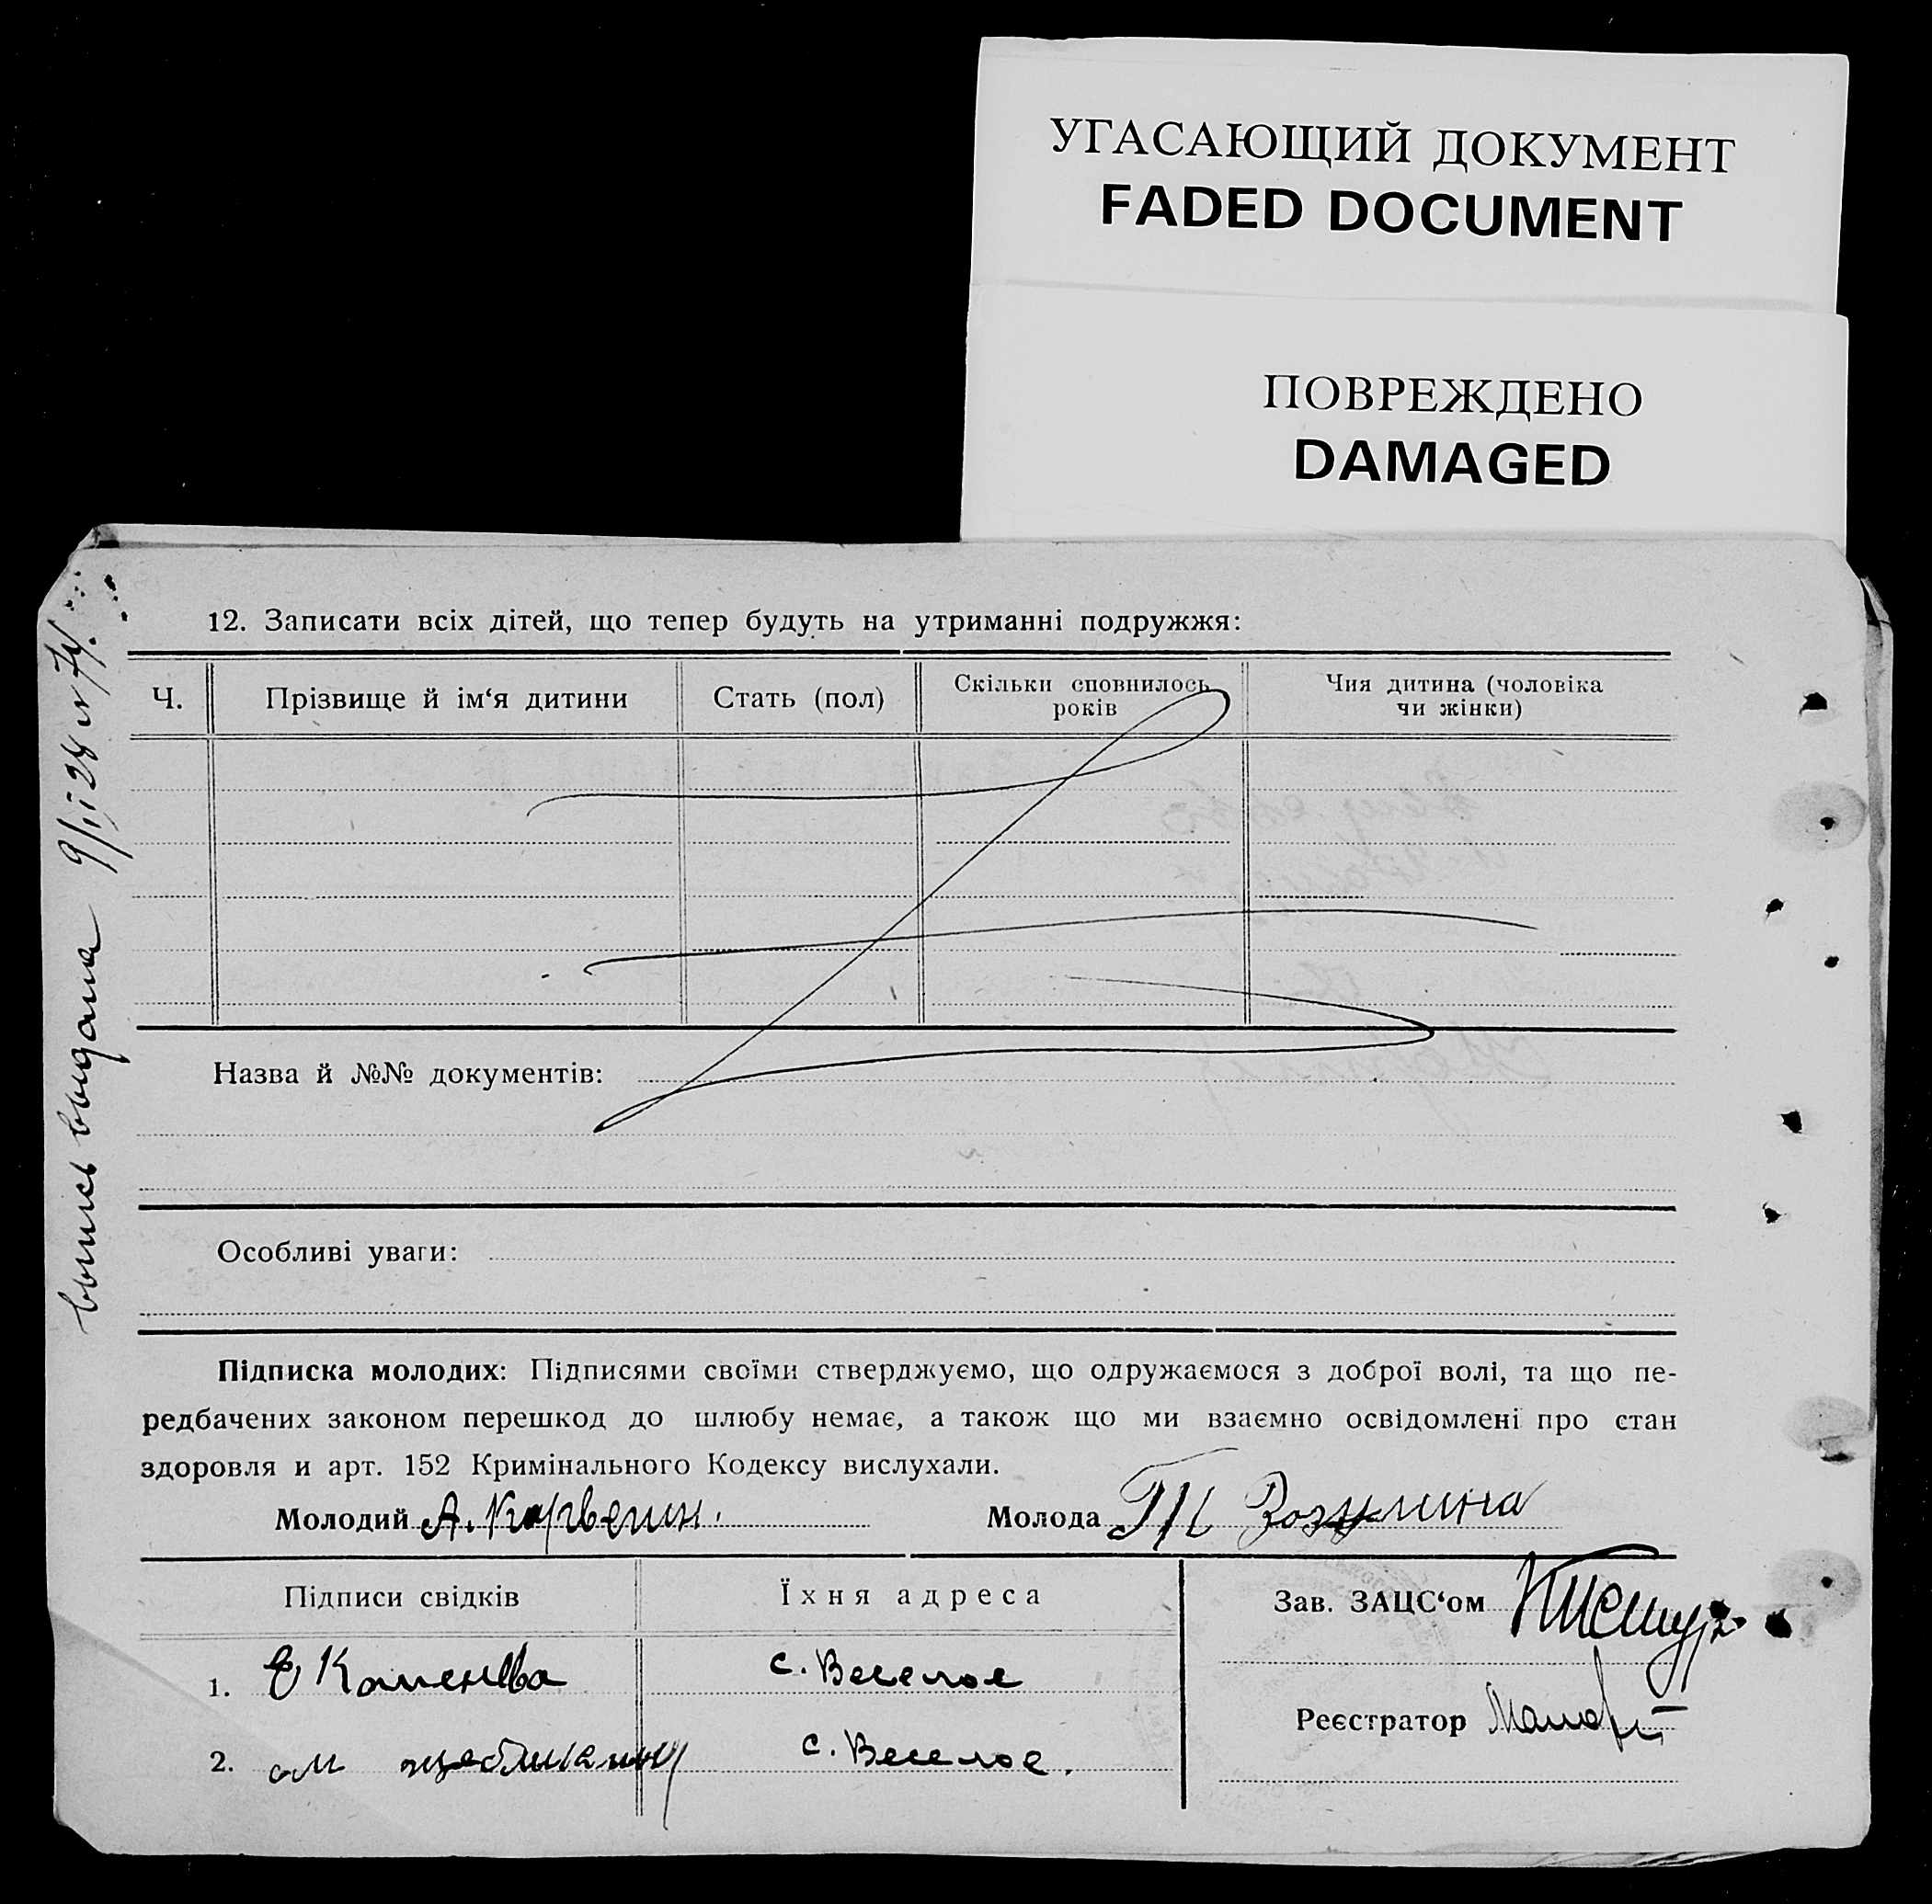 УГАСАЮЩИЙ ДОКУМЕНТ
FADED DOCUMENT
ПОВРЕЖДЕНО
DAMAGED
выпись выдана 9/II 28 № 74.
12. Записати всіх дітей, що тепер будуть на утриманні подружжя:
Ч. Прізвище й ім‘я дитини Стать (пол) Скільки сповнилось років Чия дитина (чоловіка чи жінки)
Назва й №№ документів:
Особливі уваги:
Підписка молодих: Підписями своїми стверджуємо, що одружаємося з доброї волі, та що пе-
редбачених законом перешкод до шлюбу немає, а також що ми взаємно освідомлені про стан
здоровля и арт. 152 Кримінального Кодексу вислухали.
Молодий А. Молода
Підписи свідків Їхня адреса Зав. ЗАЦС‘ом
1. Е Каменева с. Веселое
Реєстратор
2. с. Веселое.